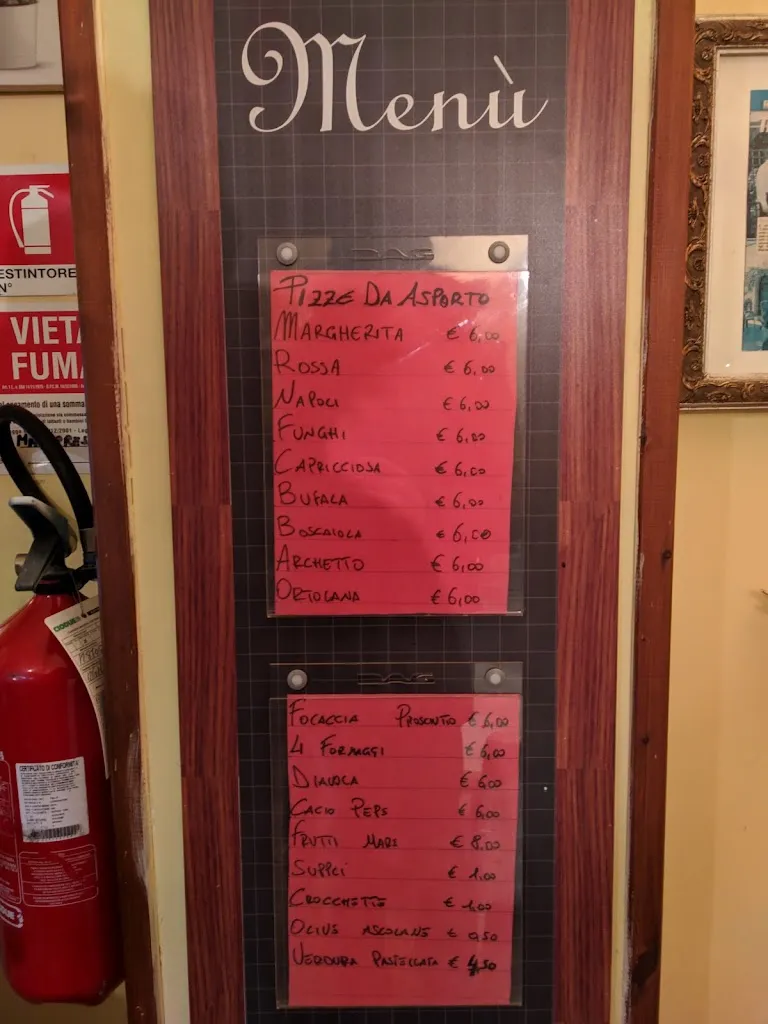 Menù
DAG
PIZZE DA ASPORTO
MARGHERITA € 6,00
ROSSA € 6,00
NAPOLI € 6,00
FUNGHI € 6,00
CAPRICCIOSA € 6,00
BUFALA € 6,00
BOSCAIOLA € 6,00
ARCHETTO € 6,00
ORTOLANA € 6,00
DAG
FOCACCIA PROSCIUTTO € 6,00
4 FORMAGGI € 6,00
DIAVOLA € 6,00
CACIO PEPE € 6,00
FRUTTI MARE € 8,00
SUPPLI € 1,00
CROCCHETTE € 1,00
OLIVE ASCOLANE € 0,50
VERDURA PASTELLATA € 4,50
ESTINTORE
N°
VIETA
FUMA
CERTIFICATO DI CONFORMITA'